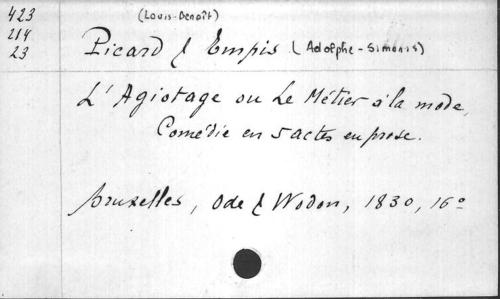 423
214
23
(Louis-Benoît)
Picard & Empis (Adolphe-Simonis)
L'Agiotage ou Le Métier à la mode,
Comédie en 5 actes en prose.
Bruxelles, Ode & Wodon, 1830, 16º